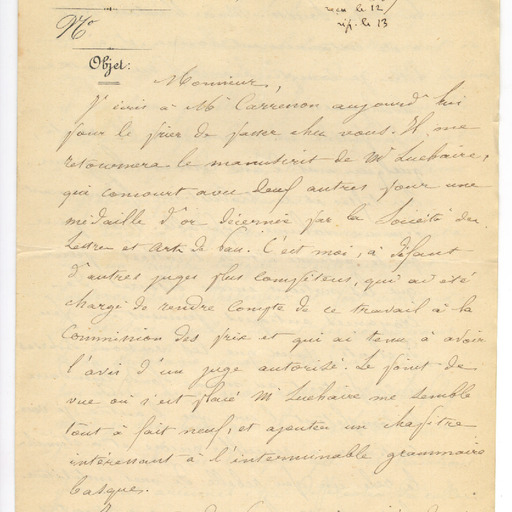 reçu le 12
rép. le 13
No
Objet:
Monsieur,
J'écris à Mr Carrenon aujourd'hui
pour le prier de passer chez vous. Il me
retournera le manuscrit de Mr Luchaire,
qui concourt avec deux autres pour une
médaille d'or décernée par la Société des
Lettres et Arts de Pau. C'est moi, à défaut
d'autres juges plus compétens, qui ai été
chargé de rendre compte de ce travail à la
Commission des prix et qui ai tenu à avoir
l'avis d'un juge autorisé. Le point de
vue où s'est placé Mr Luchaire me semble
tout à fait neuf, et ajoutera un chapitre
intéressant à l'interminable grammaire
basque.